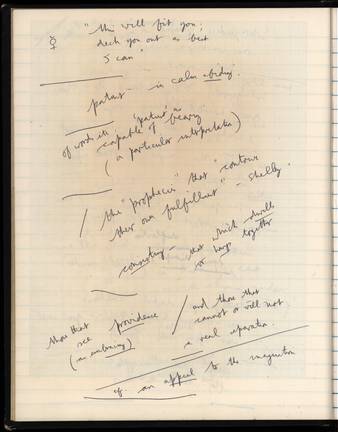 ☿ "this will fit you;
deck you out as best
I can"
patient - is calm abiding.
of words its 'patient' =
capable of bearing
(a particular interpretation)
/ the "prophecies" that "contain
their own fulfilment" - Shelley.
consisting - that which dwells
or hangs together
those that
see providence
(an embracing)
/ and those that
cannot or will not.
a real separation.
cf. an appeal to the imagination